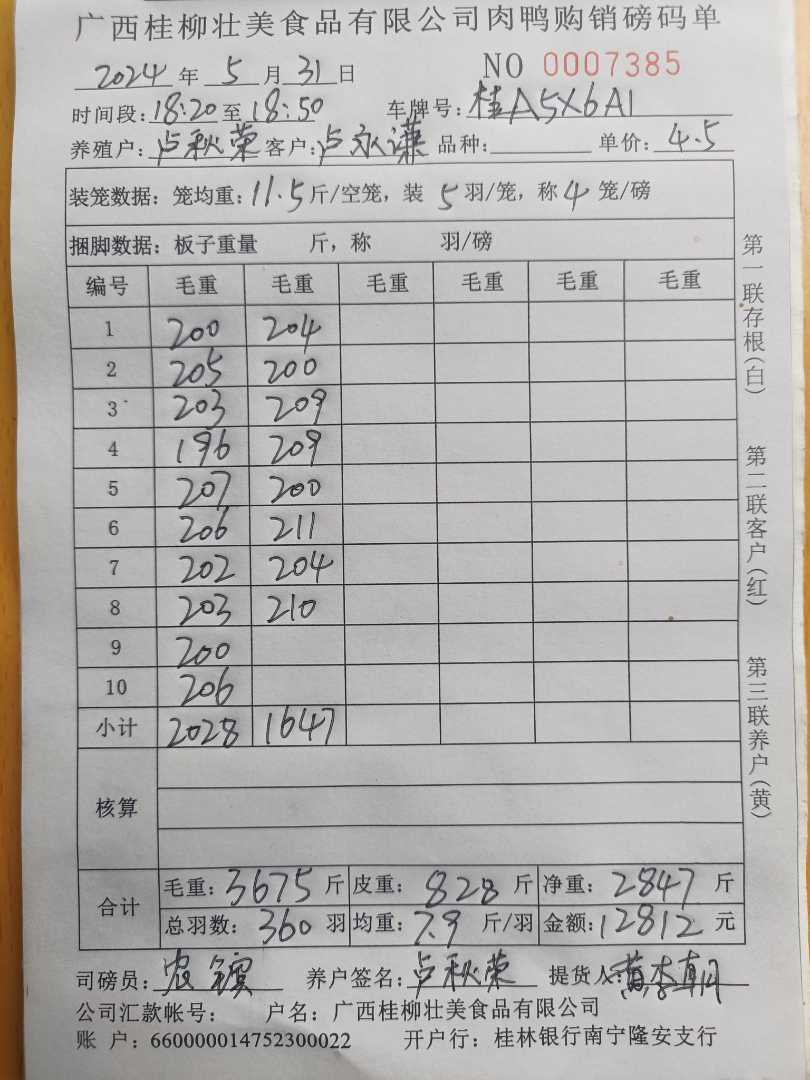 广西桂柳壮美食品有限公司肉鸭购销磅码单
2024 年 5 月 31 日 NO 0007385
时间段: 18:20 至 18:50 车牌号: 桂A5X6A1
养殖户: 卢秋荣 客户: 卢永谦 品种: 单价: 4.5
装笼数据: 笼均重: 11.5 斤/空笼, 装 5 羽/笼, 称 4 笼/磅
捆脚数据: 板子重量 斤, 称 羽/磅
编号 毛重 毛重 毛重 毛重 毛重 毛重
1 200 204
2 205 200
3 203 209
4 196 209
5 207 200
6 206 211
7 202 204
8 203 210
9 200
10 206
小计 2028 1647
核算
合计 毛重: 3675 斤 皮重: 828 斤 净重: 2847 斤
总羽数: 360 羽 均重: 7.9 斤/羽 金额: 12812 元
司磅员: 养户签名: 卢秋荣 提货人:
公司汇款帐号: 户名: 广西桂柳壮美食品有限公司
账 户: 660000014752300022 开户行: 桂林银行南宁隆安支行
第一联存根(白)
第二联客户(红)
第三联养户(黄)